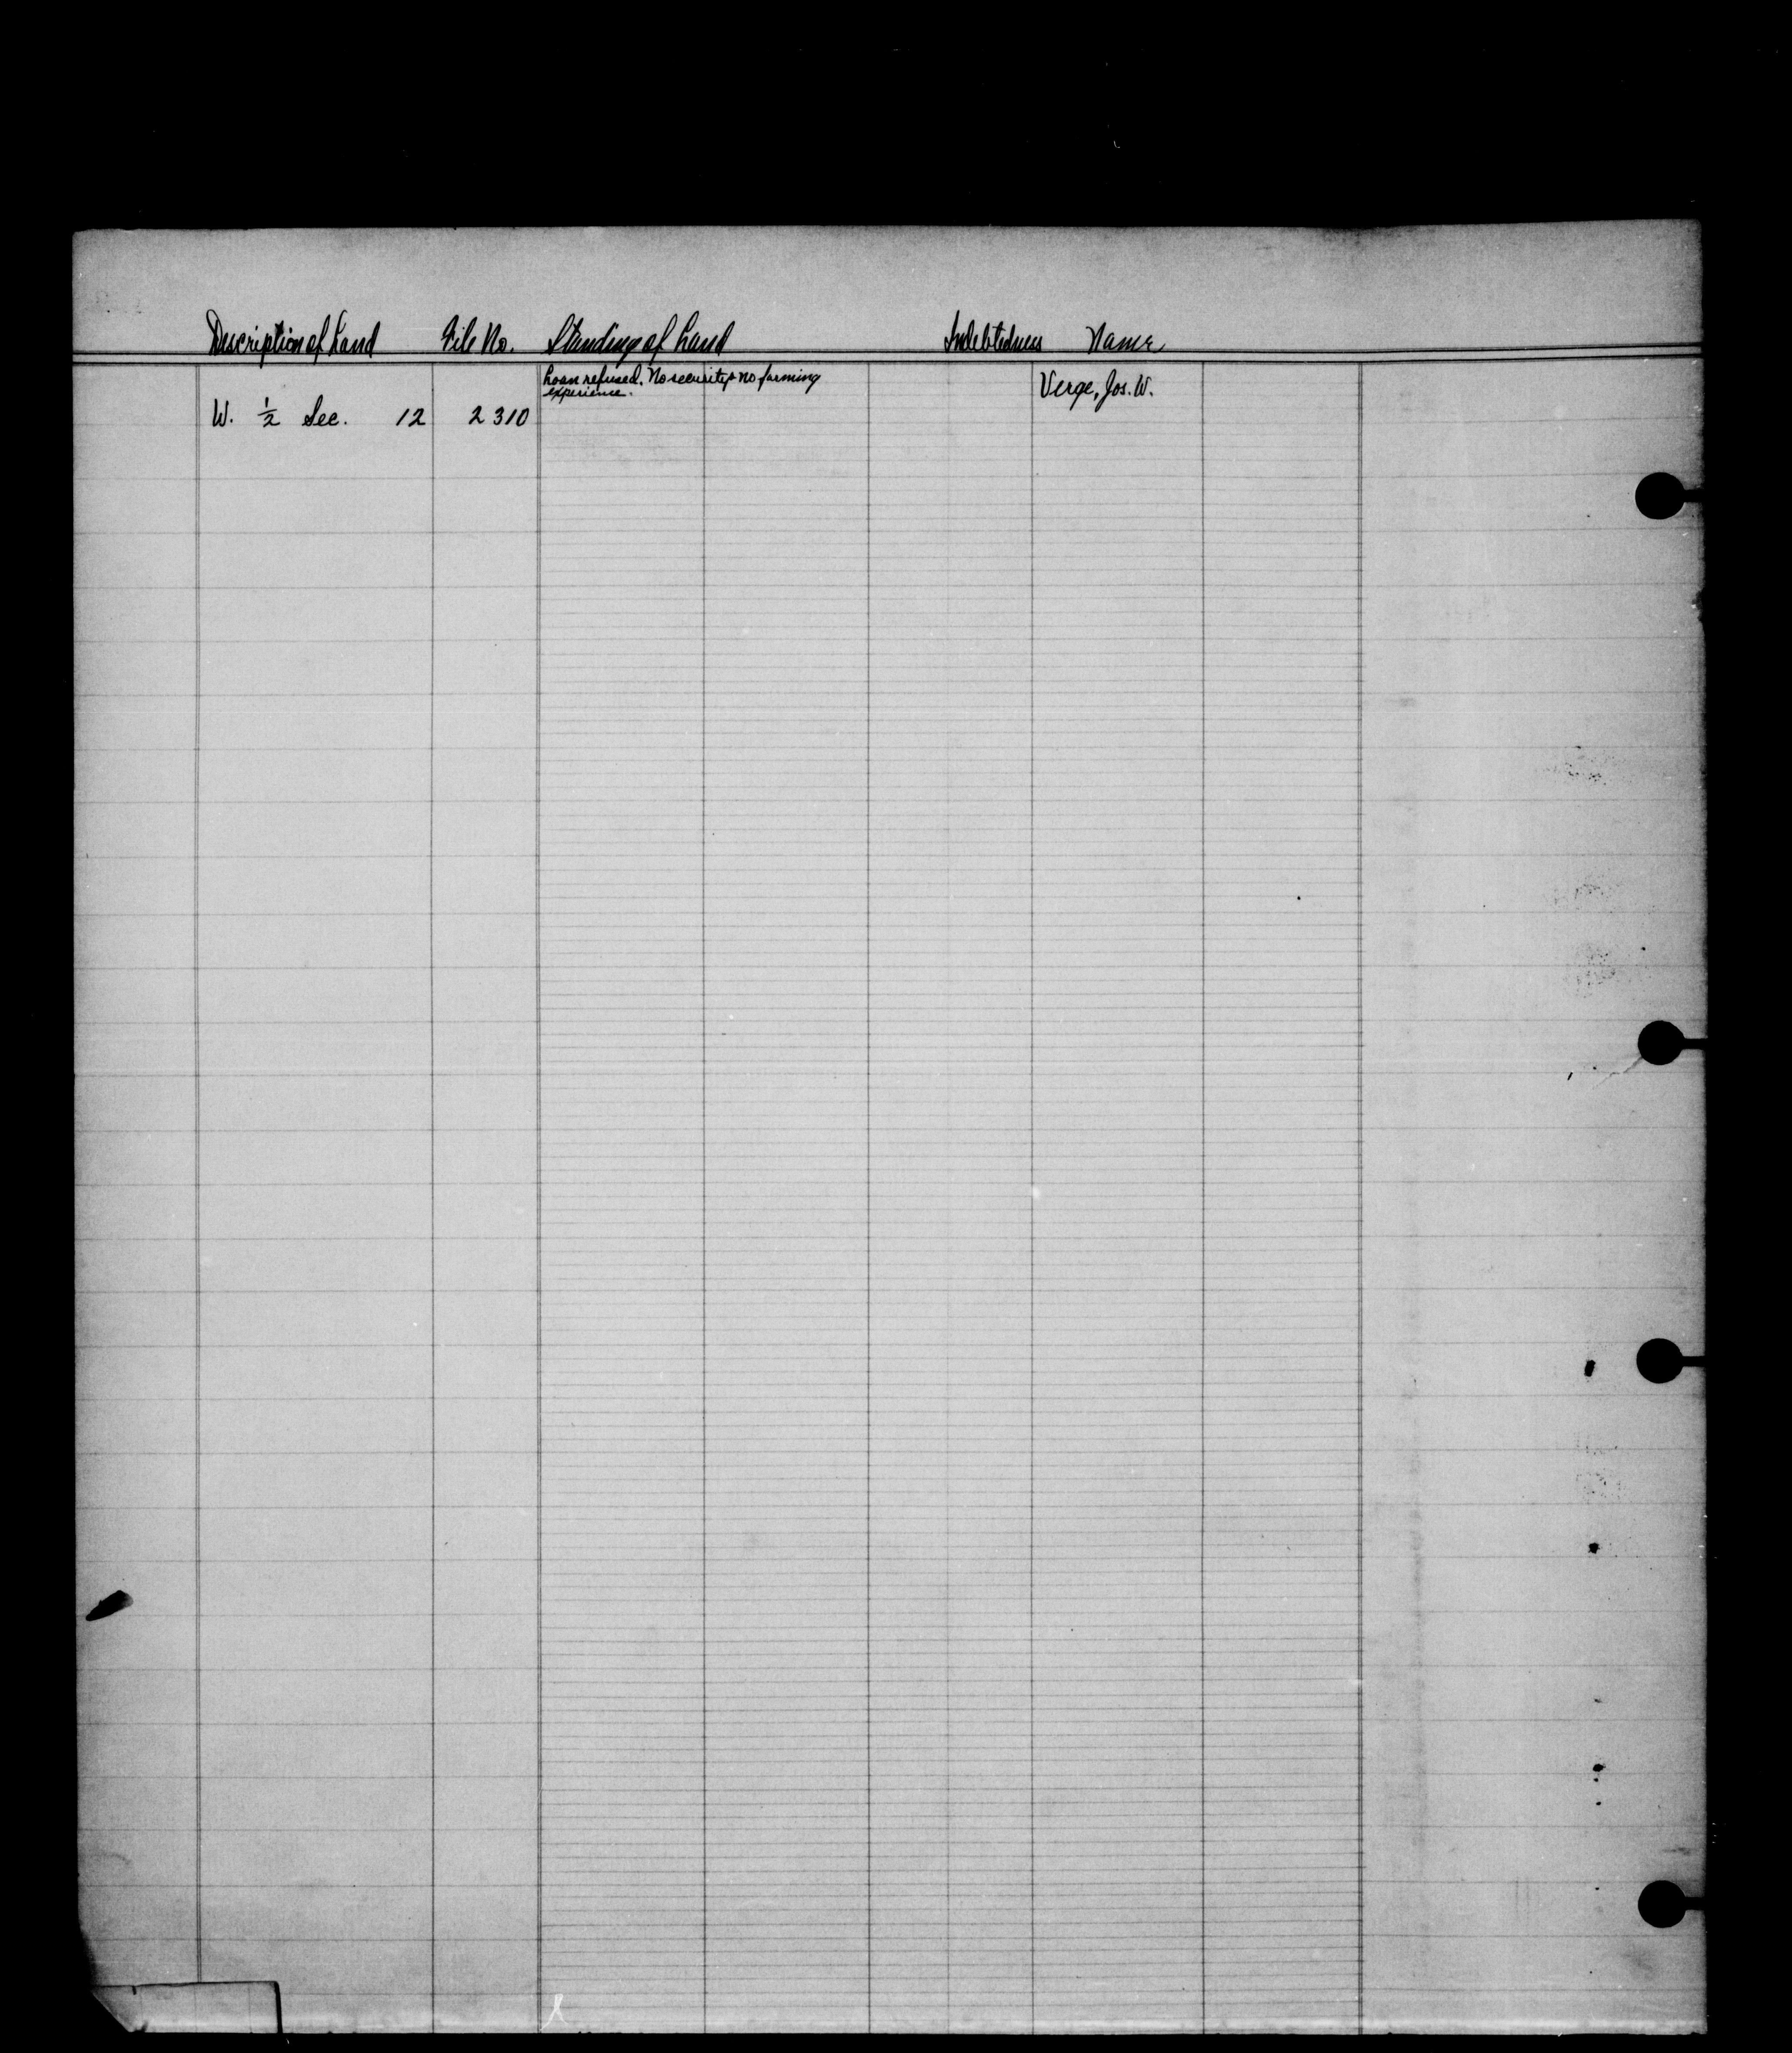 Description of Land File No. Standing of Land Indebtedness Name
Loan refused. No security & no farming Verge, Jos. W.
experience.
W. ½ Sec. 12 2310